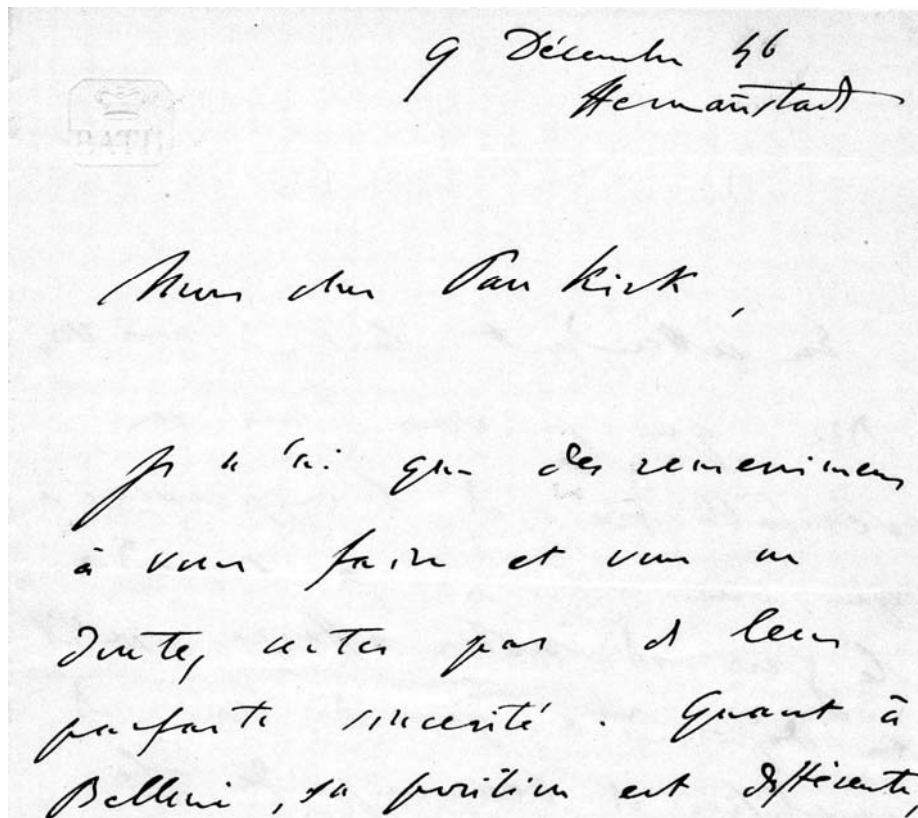 9 Décembre 46
Hermanstadt
BATH
Mon cher Van Kirk,
Je n'ai que des remerciemens
à vous faire et vous ne
doutez, certes pas de leur
parfaite sincérité. Quant à
Belloni, sa position est différente,